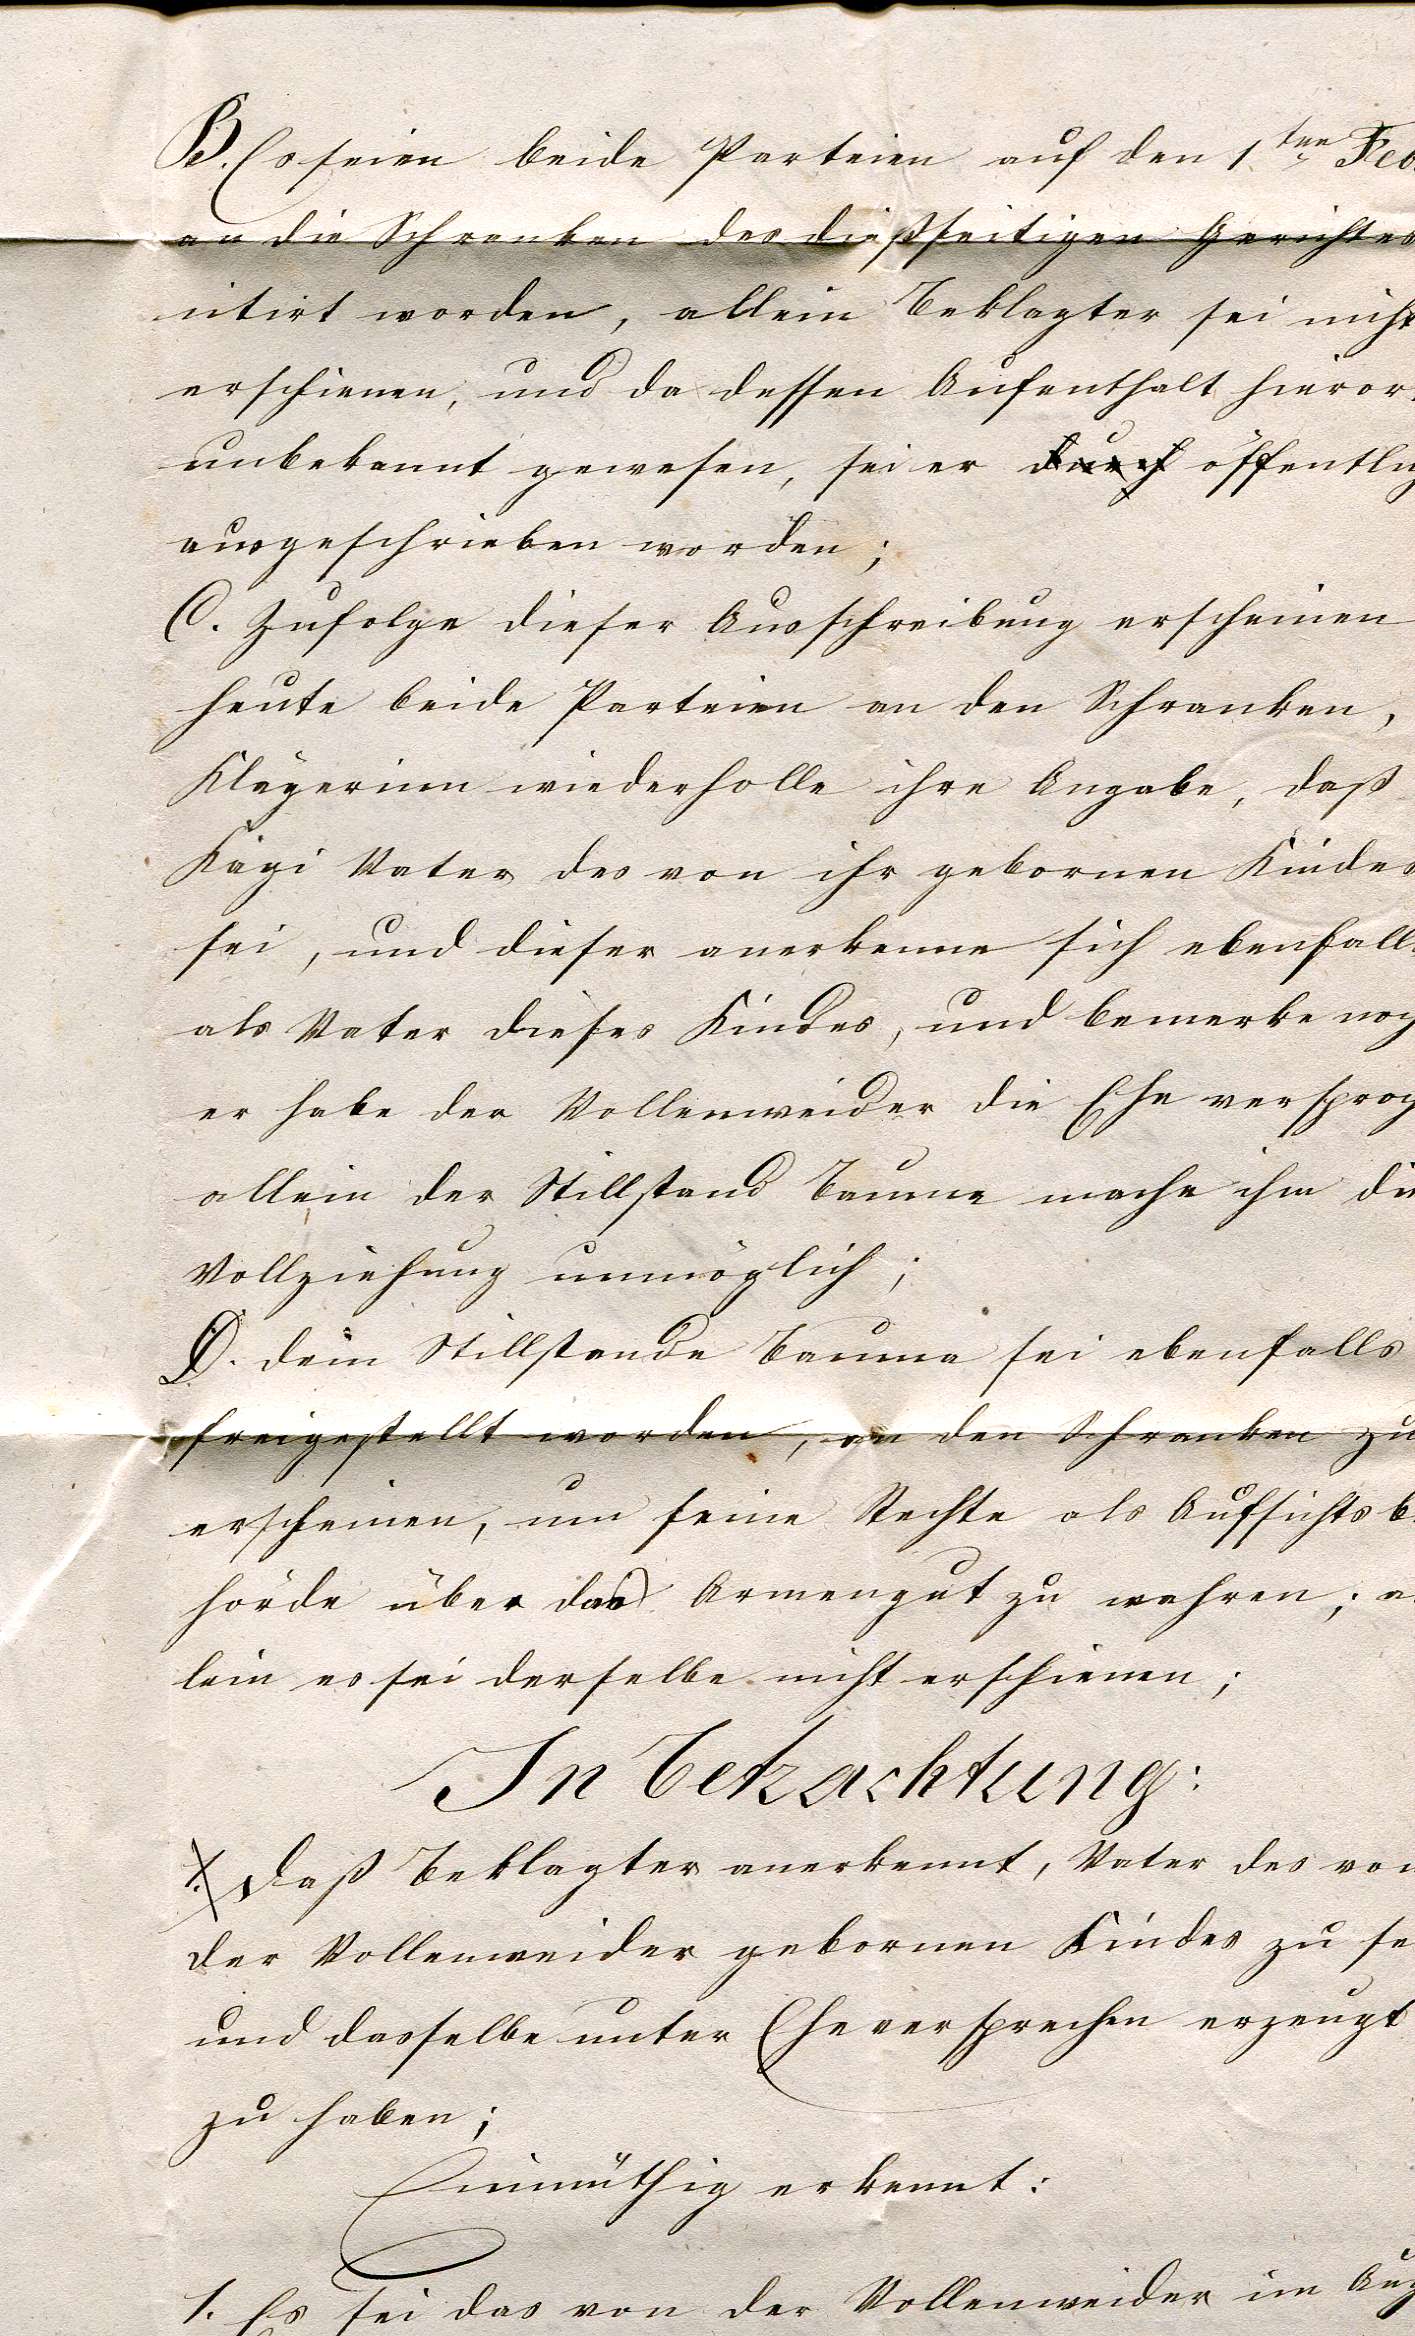 B. Es seien beide Parteien auf den 1.ten Feb.
an die Schranken des dießseitigen Gerichtes
citirt worden, allein Beklagter sei nicht
erschienen, und da dessen Aufenthalt hieror
unbekannt gewesen, sei er durch öffentlich
ausgeschrieben worden;
C. Zufolge dieser Ausschreibung erscheinen
heute beide Parteien an den Schranken,
Klägerinn wiederholle ihre Angabe, daß
Kägi Vater des von ihr gebornen Kindes
sei, und dieser anerkenne sich ebenfalls
als Vater dieses Kindes, und bemerke noch
er habe der Vollenweider die Ehe versproch
allein der Stillstand Bauma mache ihm die
Vollziehung unmöglich;
D. dem Stillstande Bauma sei ebenfalls
freigestellt worden, an den Schranken zu
erscheinen, um seine Rechte als Aufsichtsb
hörde über das Armengut zu wahren; a
lein es sei derselbe nicht erschienen;
In Betrachtung:
1. Daß Beklagter anerkennt, Vater des von
der Vollenweider gebornen Kindes zu se
und dasselbe unter Eheversprechen erzeugt
zu haben;
Einmüthig erkennt:
1. Es sei das von der Vollenweider im Aug